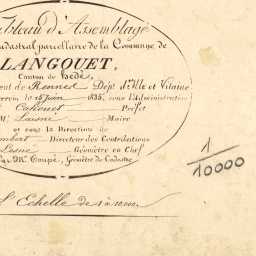 Tableau d'Assemblage
Cadastral parcellaire de la Commune de
LANGOUET,
Canton de hédé,
ent de Rennes Dépt d'Ille et Vilaine
terrein le 15 juin 1835, sous l'Administration
Préfet
Mr Maire
et sous la Direction de
Directeur des Contributions
Géomètre en Chef
Par Mr Géomètre du Cadastre
1
10000
Echelle de 1 à 10000